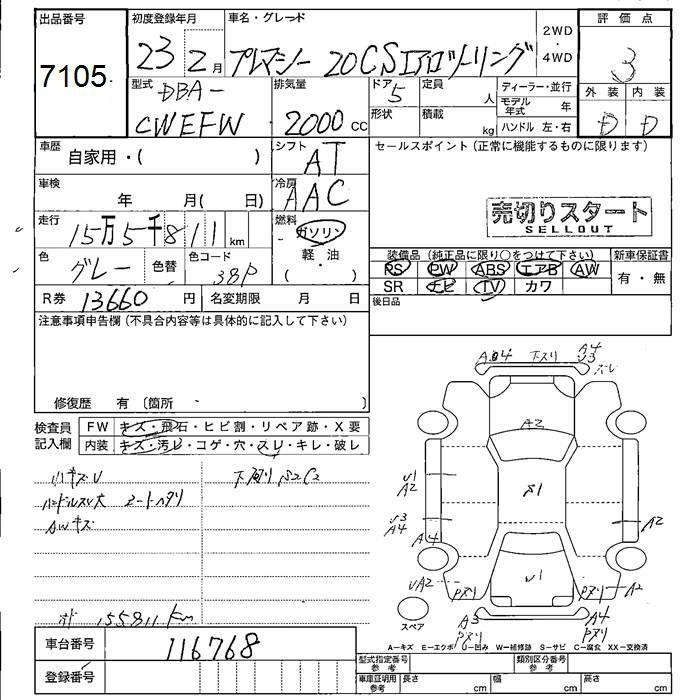 出品番号
7105
初度登録年月
23 2月
車名・グレード
プレマシー 20CSエアロツーリング
2WD
・
4WD
評価点
3
外装 内装
D D
型式
DBA-
CWEFW
排気量
2000 cc
ドア 5
形状
定員 人
積載 kg
ディーラー・並行
モデル年式 年
ハンドル 左・右
車歴
自家用・( )
シフト
AT
車検
年 月( 日)
冷房
AAC
走行
15万5千811 km
燃料
ガソリン
・
軽・油
( )
色
グレー
色替
色コード
38P
R券 13660 円
名変期限 月 日
セールスポイント (正常に機能するものに限ります)
売切りスタート
SELLOUT
装備品 (純正品に限り○をつけて下さい)
PS PW ABS エアB AW
SR ナビ TV カワ
新車保証書
有・無
後日品
注意事項申告欄 (不具合内容等は具体的に記入して下さい)
修復歴 有 〔箇所 〕
検査員
記入欄
FW キズ・飛石・ヒビ割・リペア跡・X要
内装 キズ・汚レ・コゲ・穴・スレ・キレ・破レ
小キズU
ハンドルスレ大 シートヘタリ
AWキズ
下廻りS2C2
155811 Km
車台番号 116768
登録番号
A2
S1
U1
U1
A2
U3
A4
A4
A2
UA2
Pヌリ
Pヌリ
A2
A3
Pヌリ
A4
Pヌリ
スペア
A-キズ E-エクボ U-凹み W-補修跡 S-サビ C-腐食 XX-交換済
型式指定番号
参考
類別区分番号
参考
車庫証明用
参考
長さ cm
幅 cm
高さ cm